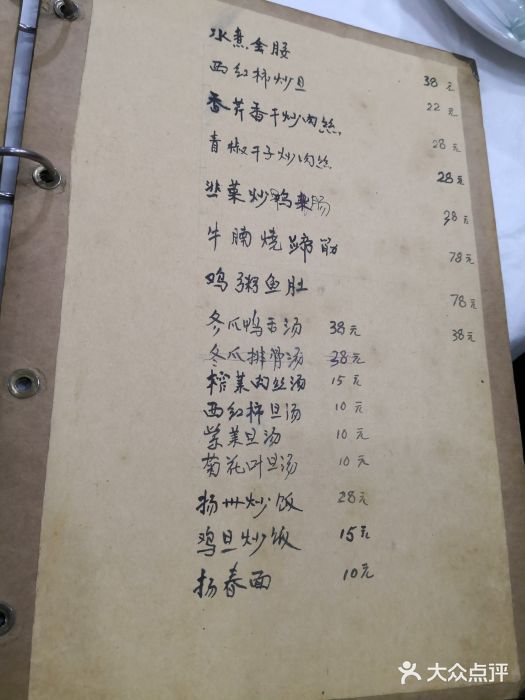 水煮全腰 38元
西红柿炒旦 22元
香芹香干炒肉丝 28元
青椒干子炒肉丝 28元
韭菜炒鸭肠 38元
牛腩烧蹄筋 78元
鸡粥鱼肚 78元
冬瓜鸭舌汤 38元 38元
冬瓜排骨汤 38元
榨菜肉丝汤 15元
西红柿旦汤 10元
紫菜旦汤 10元
菊花叶旦汤 10元
扬州炒饭 28元
鸡旦炒饭 15元
扬春面 10元
大众点评